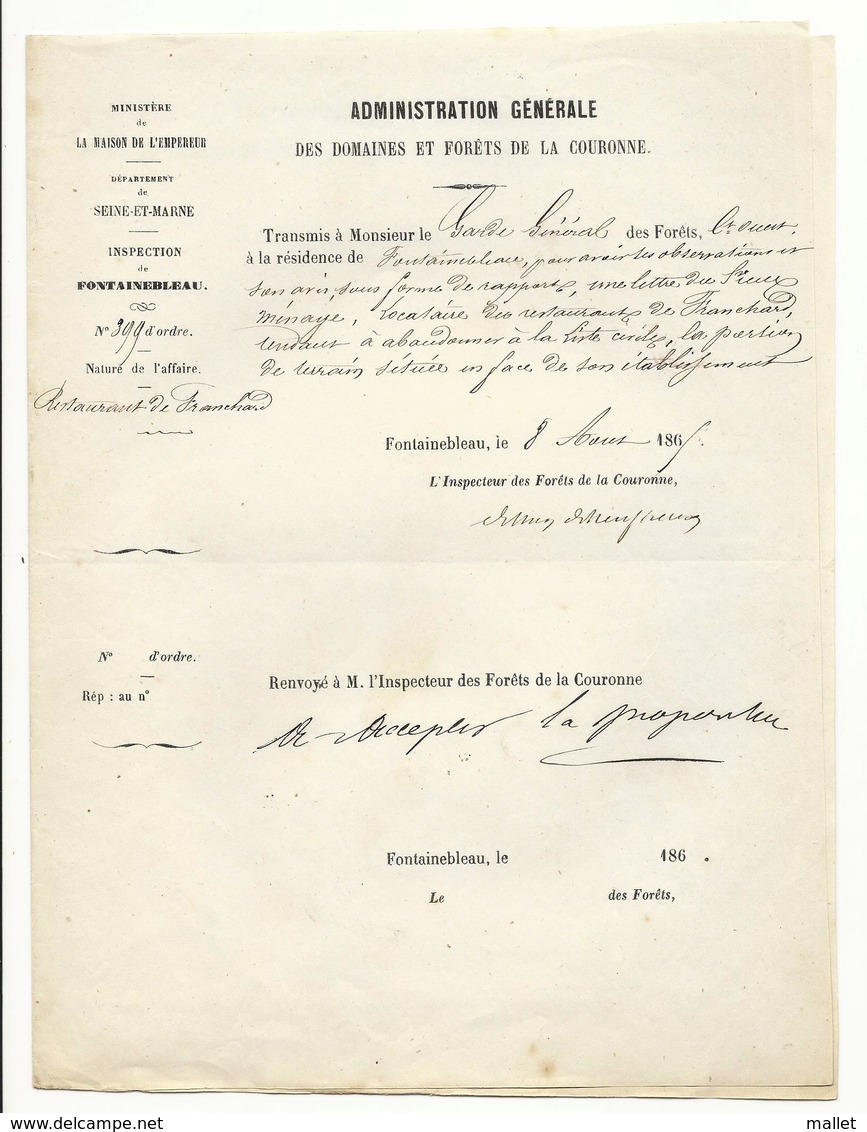 MINISTÈRE
de
LA MAISON DE L'EMPEREUR
DÉPARTEMENT
de
SEINE-ET-MARNE
INSPECTION
de
FONTAINEBLEAU.
N° 399 d'ordre.
Nature de l'affaire.
Restaurant de Franchard
ADMINISTRATION GÉNÉRALE
DES DOMAINES ET FORÊTS DE LA COURONNE.
Transmis à Monsieur le Garde Général des Forêts, Ct ouest.
à la résidence de Fontainebleau, pour avoir ses observations et
son avis, sous forme de rapport, une lettre du Sieur
Ménage, Locataire du restaurant de Franchard,
tendant à abandonner à la Liste civile, la portion
de terrain située en face de son établissement
Fontainebleau, le 8 Aout 1865.
L'Inspecteur des Forêts de la Couronne,
N° d'ordre.
Rép : au n°
Renvoyé à M. l'Inspecteur des Forêts de la Couronne
accepter la proposition
Fontainebleau, le 186 .
Le des Forêts,
delcampe.net
mallet